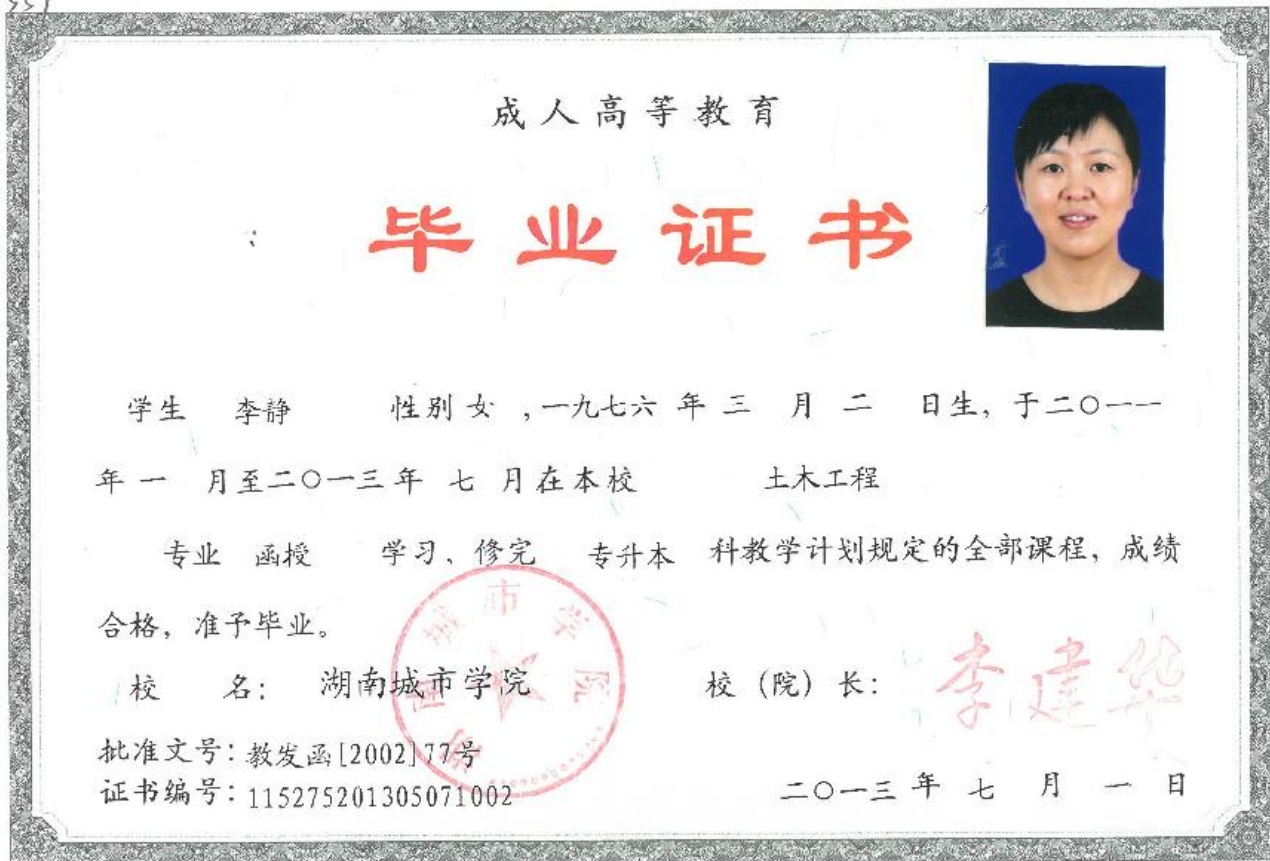 成人高等教育
毕业证书
学生 李静 性别 女 ,一九七六 年 三 月 二 日生, 于二〇一一
年 一 月至二〇一三年 七 月在本校 土木工程
专业 函授 学习、修完 专升本 科教学计划规定的全部课程, 成绩
合格, 准予毕业。
湖南城市学院
校 名: 湖南城市学院 校 (院) 长: 李建华
批准文号: 教发函[2002]77号
证书编号: 115275201305071002 二〇一三 年 七 月 一 日